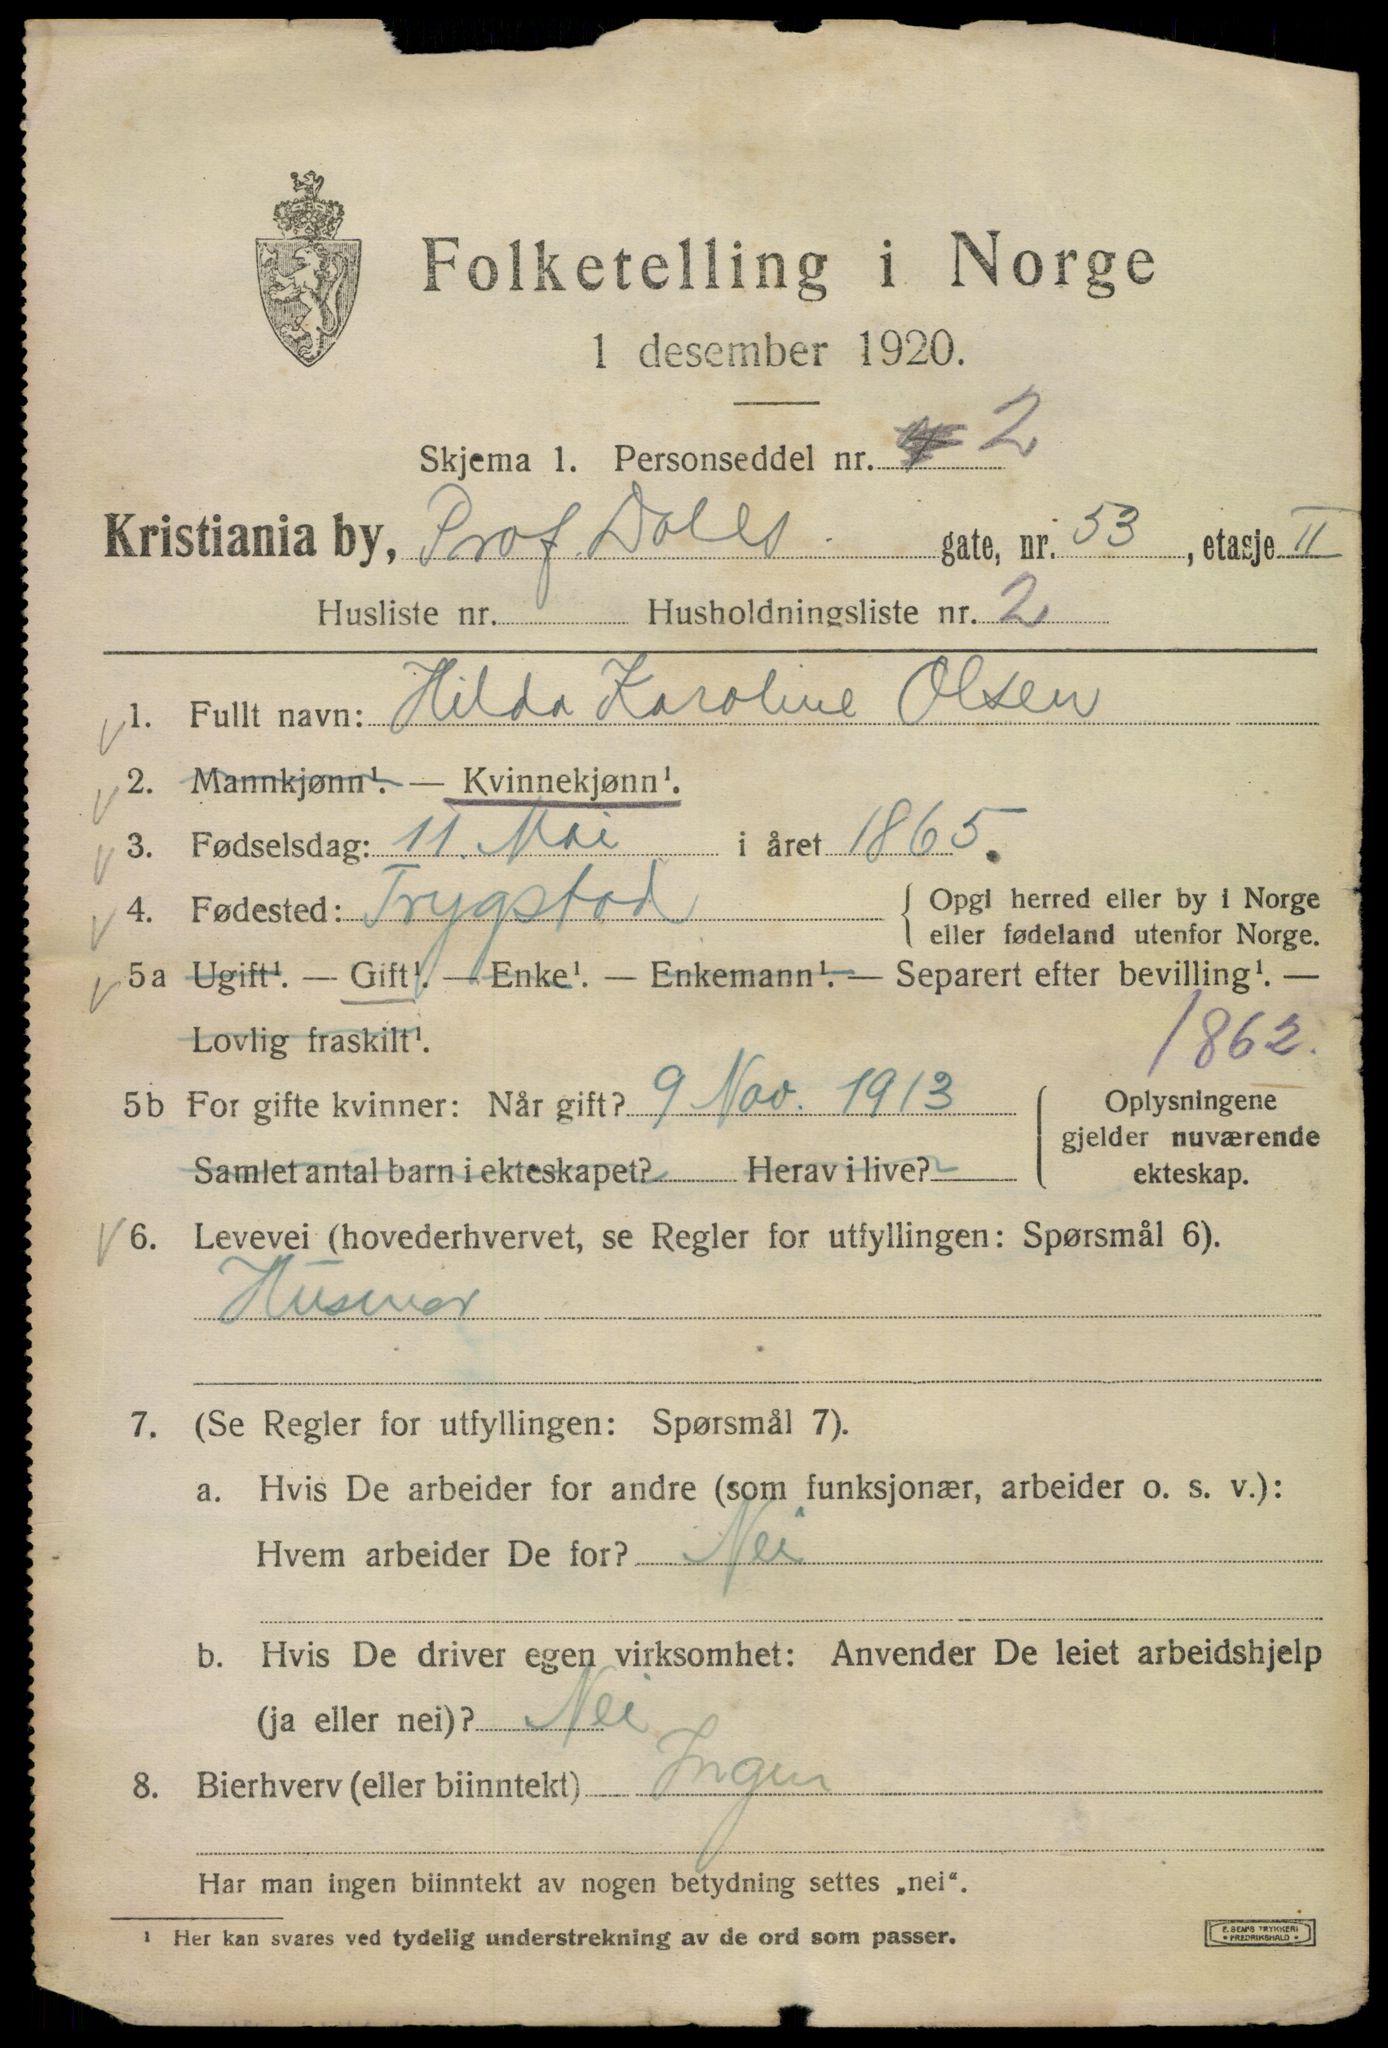 Folketelling i Norge
1 desember 1920.
Skjema 1. Personseddel nr. 2
Kristiania by, Prof. Dales gate, nr. 53, etasje II
Husliste nr. Husholdningsliste nr. 2
1. Fullt navn: Hilda Karoline Olsen
2. Mannkjønn¹. — Kvinnekjønn¹.
3. Fødselsdag: 11. Mai i året 1865.
4. Fødested: Trygstad { Opgi herred eller by i Norge
eller fødeland utenfor Norge.
5a Ugift¹. — Gift¹. — Enke¹. — Enkemann¹. — Separert efter bevilling¹. —
Lovlig fraskilt¹. 1862.
5b For gifte kvinner: Når gift? 9 Nov. 1913 { Oplysningene
gjelder nuværende
Samlet antal barn i ekteskapet? Herav i live? ekteskap.
6. Levevei (hovederhvervet, se Regler for utfyllingen: Spørsmål 6).
Husmor
7. (Se Regler for utfyllingen: Spørsmål 7).
a. Hvis De arbeider for andre (som funksjonær, arbeider o. s. v.):
Hvem arbeider De for? Nei
b. Hvis De driver egen virksomhet: Anvender De leiet arbeidshjelp
(ja eller nei)? Nei
8. Bierhverv (eller biinntekt) Ingen
Har man ingen biinntekt av nogen betydning settes „nei“.
¹ Her kan svares ved tydelig understrekning av de ord som passer.
E. SEM'S TRYKKERI
• FREDRIKSHALD •